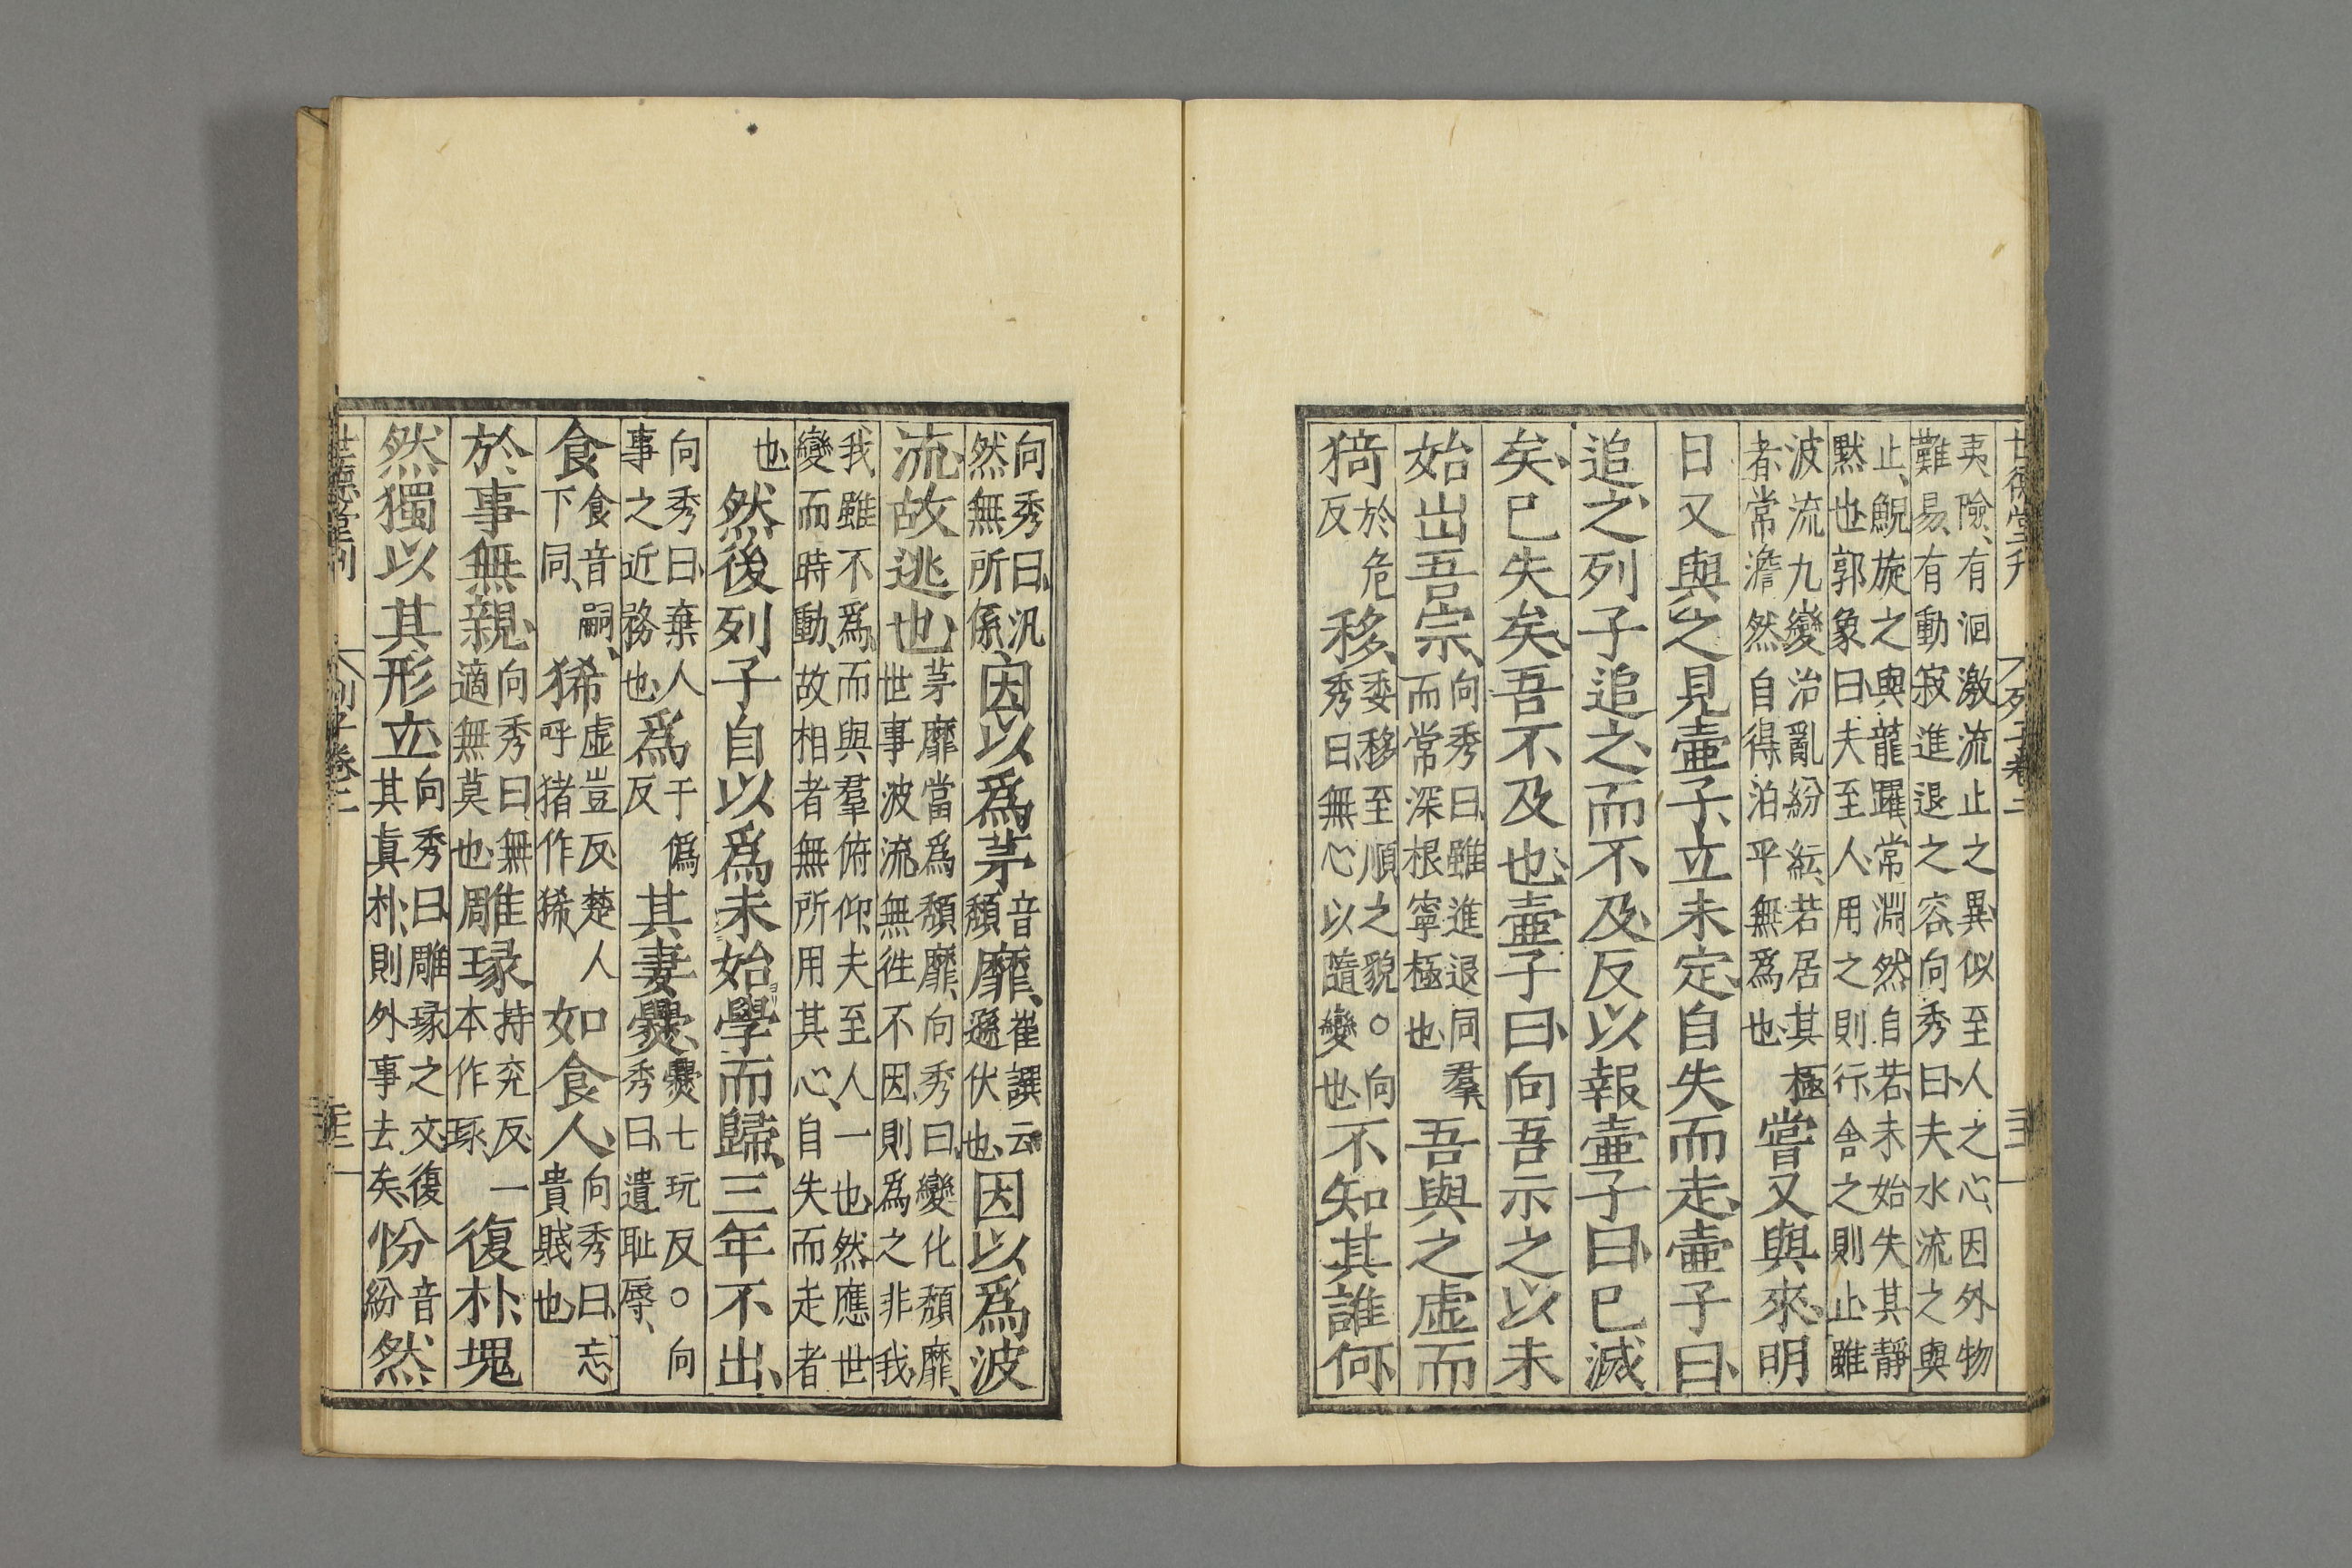 夷險、有洄激流止之異、似至人之心、因外物
難易、有動寂進退之容、向秀曰、夫水流之與
止、鯢旋之與龍躍、常淵然自若、未始失其靜
默也、郭象曰、夫至人、用之則行、舍之則止、雖
波流九變、治亂紛紜、若居其極
者、常澹然自得、泊乎無爲也、
嘗又與來、明
日又與之見壷子、立未定、自失而走、壷子曰、
追之、列子追之、而不及、反以報壷子曰、已滅
矣、已失矣、吾不及也、壷子曰、向吾示之以未
始出吾宗、
向秀曰、雖進退同羣、
而常深根寧極也、
吾與之虚而
猗
於危
反
移、
委移、至順之貌○向
秀曰、無心以隨變也、
不知其誰何
向秀曰、汎
然無所係、
因以爲茅
音
頹
靡、
崔譔云
遜伏也、
因以爲波
流、故逃也、
茅靡當爲頹靡、向秀曰、變化頹靡、
世事波流、無往不因、則爲之非我、
我雖不爲、而與羣俯仰、夫至人、一也、然應世
變而時動、故相者無所用其心、自失而走者
也、
然後列子自以爲未始學而歸、三年不出、
向秀曰、棄人
事之近務也、
爲
于僞
反
其妻㸑、
㸑七玩反○向
秀曰、遺恥辱、
食
食音嗣、
下同、
狶
虚豈反、楚人
呼猪作狶、
如食人、
向秀曰、忘
貴賎也、
於事無親、
向秀曰、無
適無莫也、
雕瑑
持兖反、一
本作琢、
復朴、塊
然獨以其形立、
向秀曰、雕瑑之文、復
其眞朴、則外事去矣、
㤋
音
紛
然
列子卷二